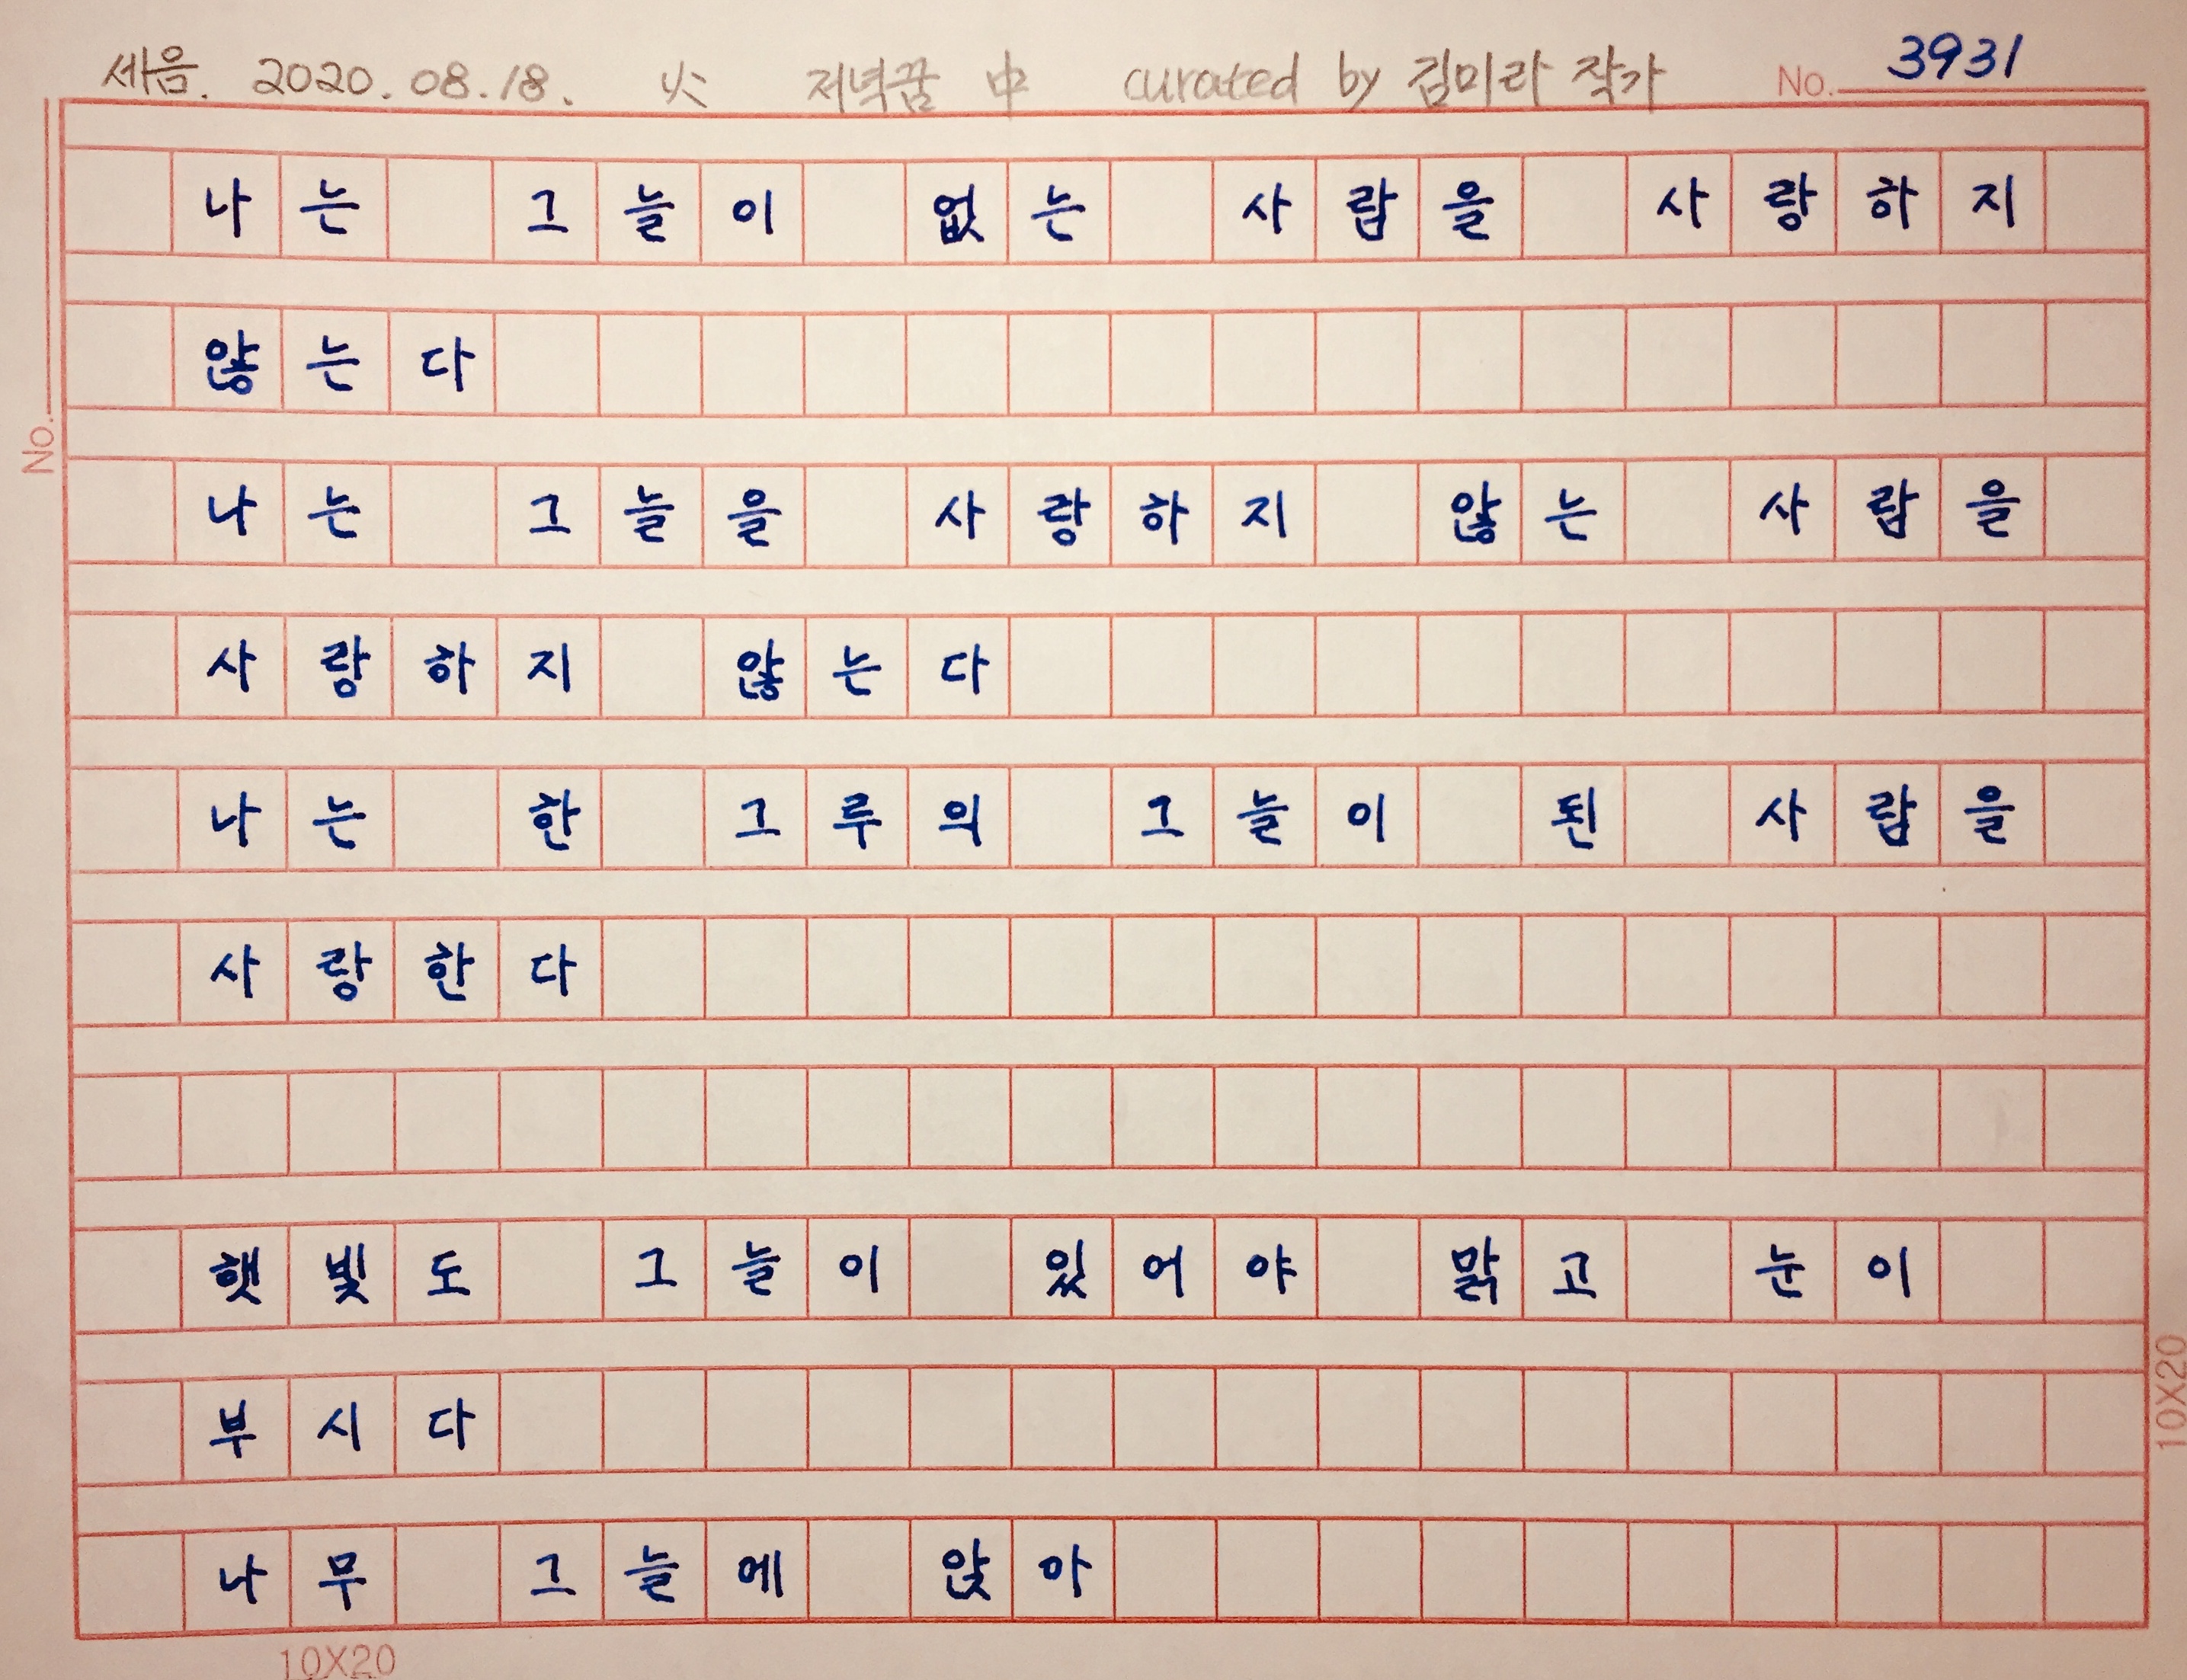 세음. 2020.08.18. 火 저녁꿈 中 curated by 김미라 작가 No. 3931
나는 그늘이 없는 사람을 사랑하지
않는다
No.
나는 그늘을 사랑하지 않는 사람을
사랑하지 않는다
나는 한 그루의 그늘이 된 사람을
사랑한다
햇빛도 그늘이 있어야 맑고 눈이
부시다
10X20
나무 그늘에 앉아
10X20